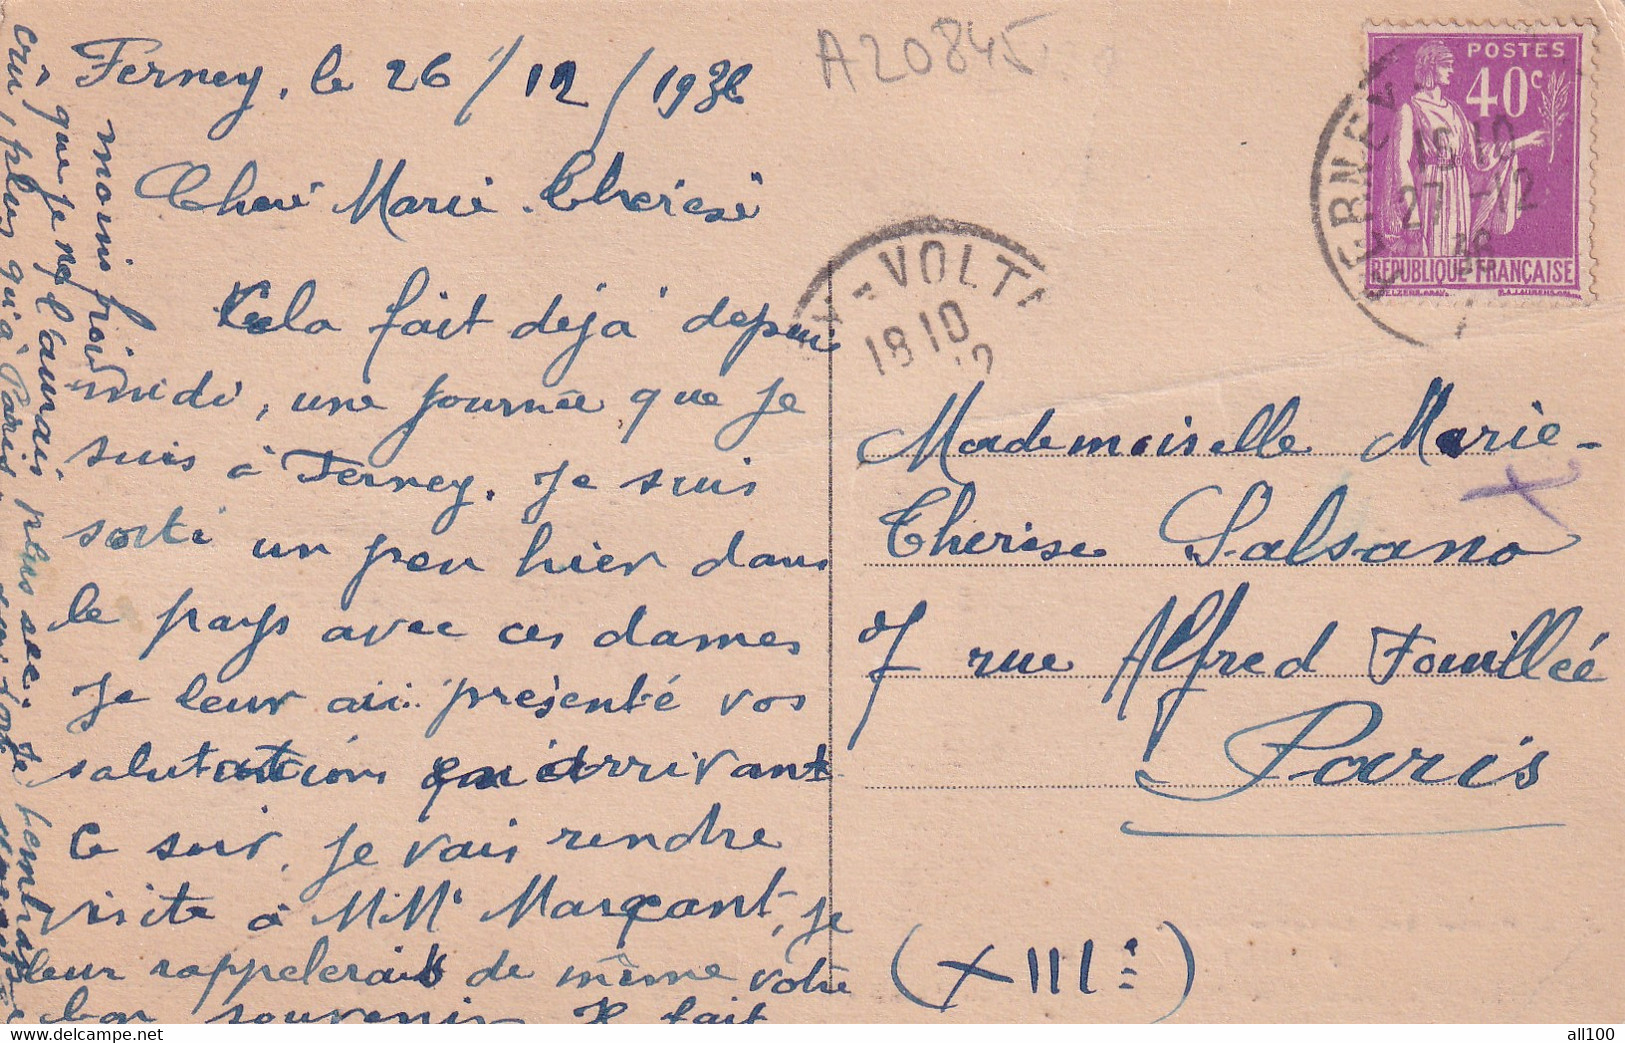 A20845
Ferney, le 26/12/1936
Cheré Marie-Thérèse
Cela fait déjà depuis
midi, une journée que je
suis à Ferney. Je suis
sorti un peu hier dans
le pays avec ces dames
Je leur ai présenté vos
salutations en arrivant
Ce soir, je vais rendre
visite à M.M. Marçant, je
leur rappelerais de même votre
bon souvenir Il fait
moins froid
que je ne l'aurais plus sec. Je
crû, plus qu'à Paris
POSTES
40c
REPUBLIQUE FRANÇAISE
FERNEY-V
18 10
27-12
36
Y=VOLTA
18 10
12
Mademoiselle Marie-
Therèse Salsano
7 rue Alfred Fouillée
Paris
(XIIIe)
all100